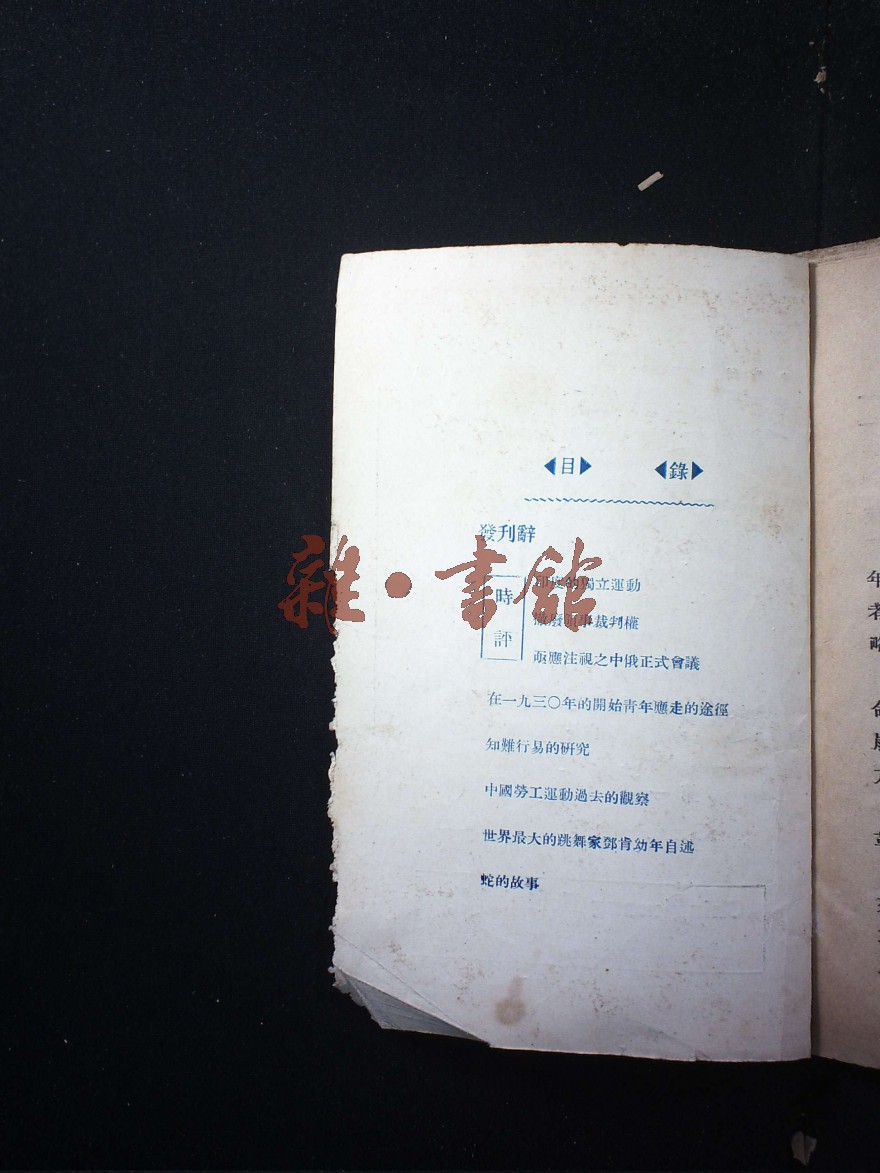 ◀目▶ ◀錄▶
發刊辭
時評
印度的獨立運動
撤廢領事裁判權
亟應注視之中俄正式會議
在一九三〇年的開始青年應走的途徑
知難行易的研究
中國勞工運動過去的觀察
世界最大的跳舞家鄧肯幼年自述
蛇的故事
雜·書館
年
者
略